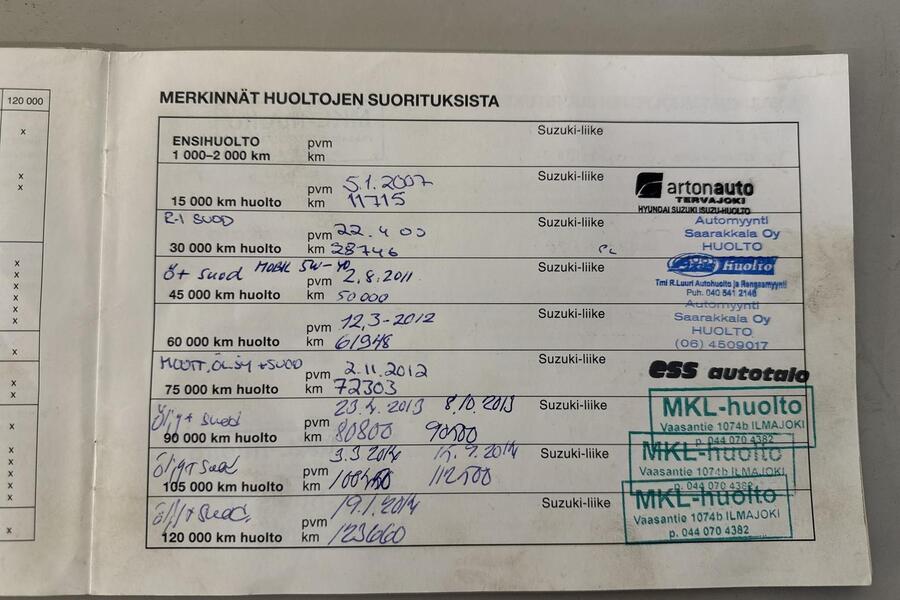 120 000
x
x
x
x
x
x
x
x
x
x
x
x
x
x
x
x
x
x
MERKINNÄT HUOLTOJEN SUORITUKSISTA
ENSIHUOLTO
1 000–2 000 km
pvm
km
Suzuki-liike
15 000 km huolto
pvm 5.1.2007
km 11715
Suzuki-liike
artonauto
TERVAJOKI
HYUNDAI SUZUKI ISUZU-HUOLTO
30 000 km huolto
pvm 22.4
km 28746
Suzuki-liike
Automyynti
Saarakkala Oy
HUOLTO
Öt suod MOBIL 5W-40
45 000 km huolto
pvm 2.8.2011
km 50 000
Suzuki-liike
Huolto
Tmi R.Luuri Autohuolto ja Rengasmyynti
Puh. 040 541 2146
60 000 km huolto
pvm 12.3-2012
km 61948
Suzuki-liike
Automyynti
Saarakkala Oy
HUOLTO
(06) 4509017
75 000 km huolto
pvm 2.11.2012
km 72303
Suzuki-liike
ess autotalo
90 000 km huolto
pvm 23.4.2013 8.10.2013
km 80800 90500
Suzuki-liike
MKL-huolto
Vaasantie 1074b ILMAJOKI
p. 044 070 4382
105 000 km huolto
pvm 3.3.2014
km 112500
Suzuki-liike
MKL-huolto
Vaasantie 1074b ILMAJOKI
p. 044 070 4382
120 000 km huolto
pvm
km 123660
Suzuki-liike
MKL-huolto
Vaasantie 1074b ILMAJOKI
p. 044 070 4382